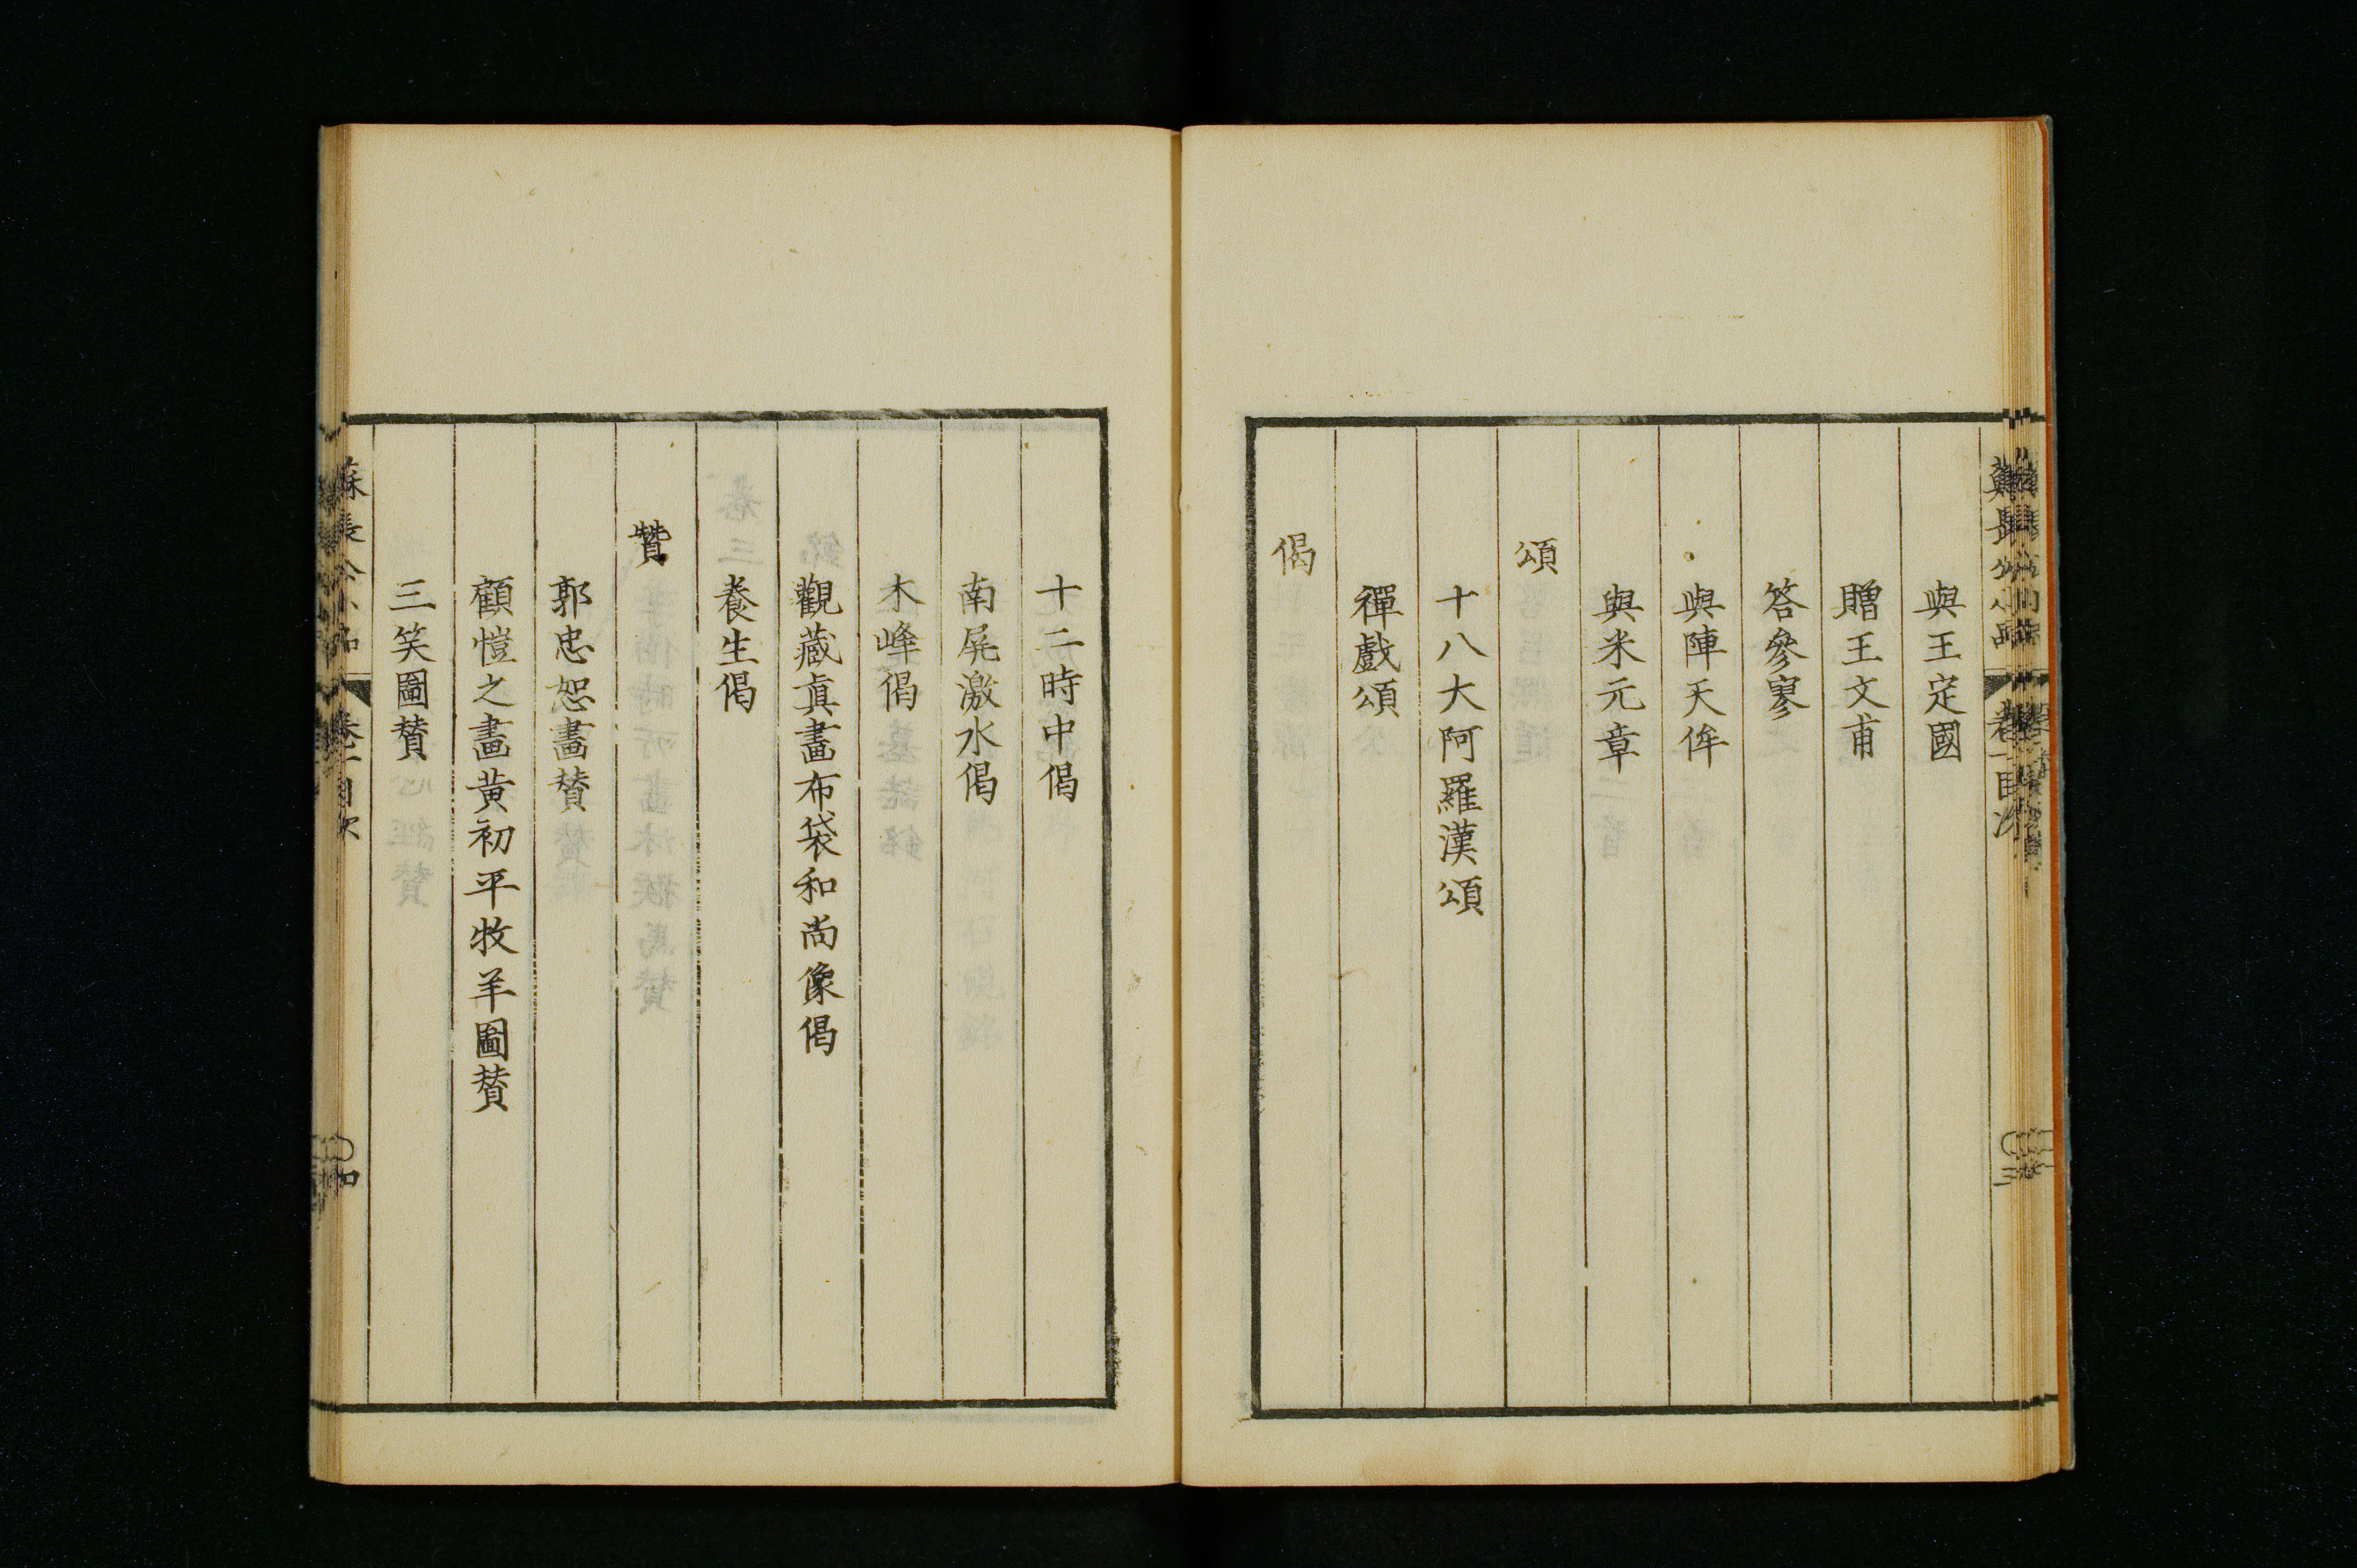 與王定國
贈王文甫
答參寥
與陣天侔
與米元章
頌
十八大阿羅漢頌
禪戲頌
偈
十二時中偈
南屏激水偈
木峰偈
觀藏眞畫布袋和尚像偈
養生偈
贊
郭忠恕畫賛
顧愷之畫黄初平牧羊圖賛
三笑圖賛
蘇長公小品